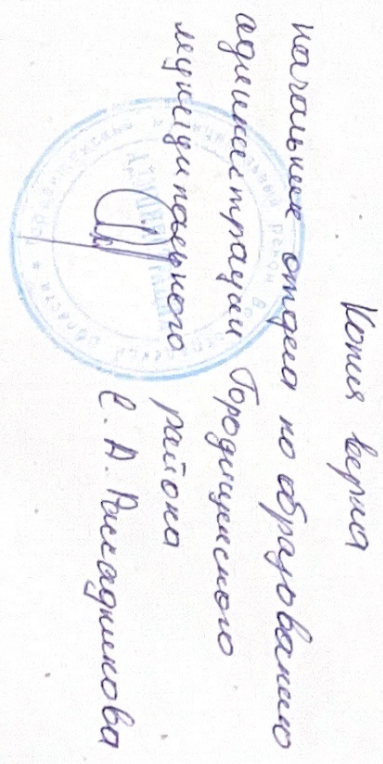 Копия верна
начальник отдела по образованию
администрации Городищенского
муниципального района
С. А. Рассадникова